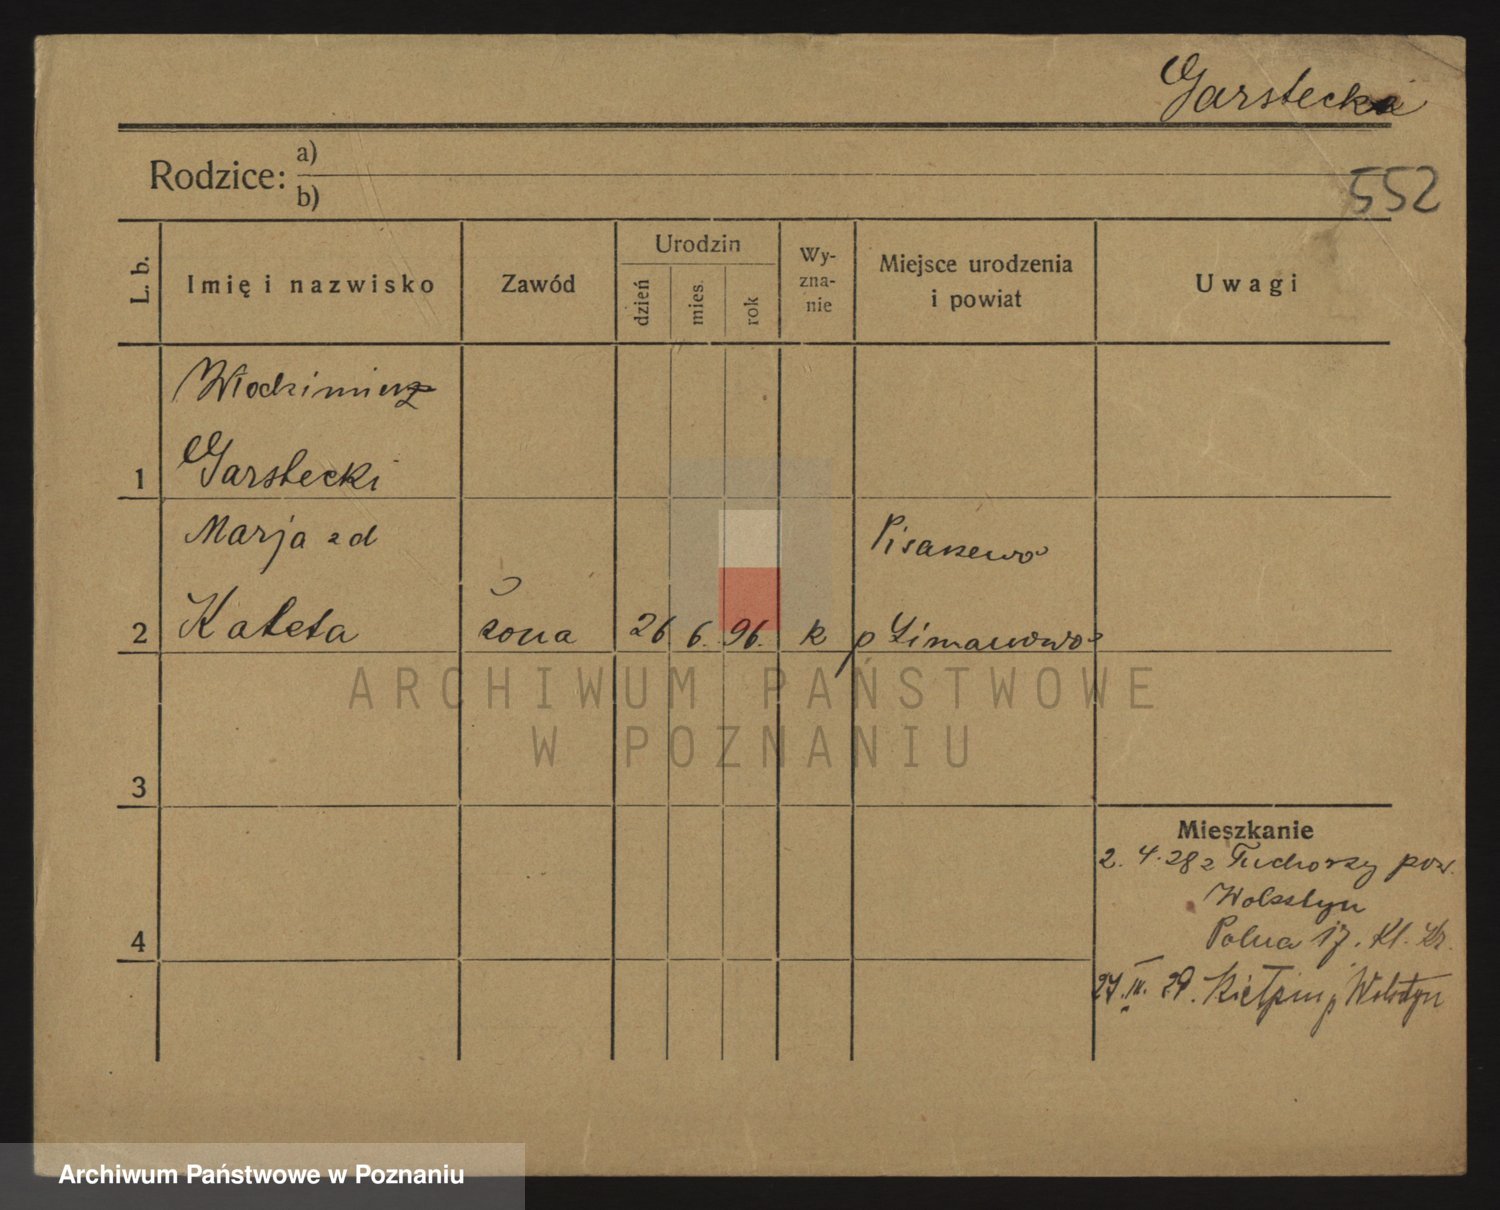 Garstecki
Rodzice: a)
b)
552
L. b.
Imię i nazwisko
Zawód
Urodzin
dzień
mies.
rok
Wy-
zna-
nie
Miejsce urodzenia
i powiat
Uwagi
Włodzimierz
1 Garstecki
Marja z d Pisarzewo
2 Kaleta żona 26 6. 96. k p Limanowo
ARCHIWUM PAŃSTWOWE
W POZNANIU
3
Mieszkanie
2. 4. 28 z Tuchorzy pow.
Wolsztyn
4 Polna 17. Kl. Kr.
27. IV. 29. Kiełpin p Wolsztyn
Archiwum Państwowe w Poznaniu